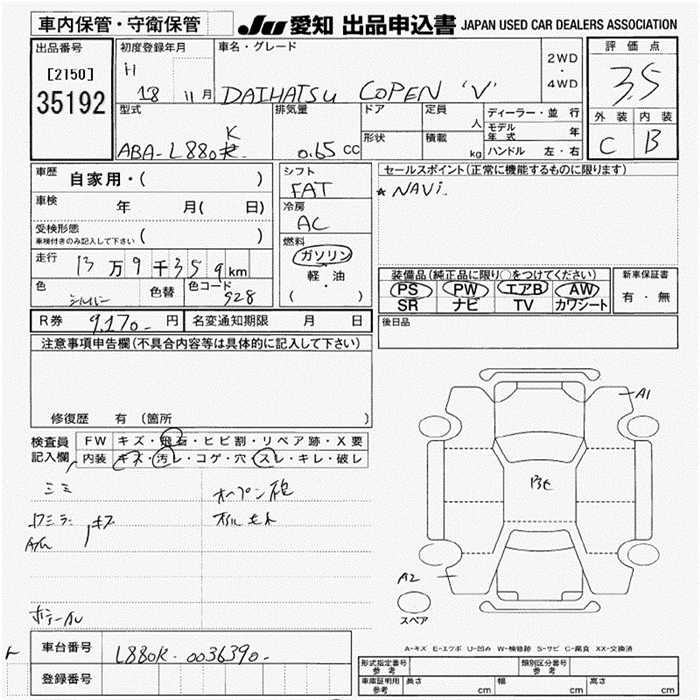 車内保管・守衛保管
JU 愛知 出品申込書 JAPAN USED CAR DEALERS ASSOCIATION
出品番号
[2150]
35192
初度登録年月
H 18 11月
車名・グレード
DAIHATSU COPEN 'V'
2WD
・
4WD
評価点
3.5
外装 内装
C B
型式
K
ABA-L880
排気量
0.65 CC
ドア
形状
定員
人
積載
kg
ディーラー・並行
モデル年式 年
ハンドル 左・右
車歴
自家用・( )
車検
年 月( 日)
受検形態
車検付きのみ記入して下さい ( )
走行
13万9千359km
色
シルバー
色替
色コード
S28
シフト
FAT
冷房
AC
燃料
ガソリン
軽・油
( ・ )
セールスポイント(正常に機能するものに限ります)
★NAVi.
装備品(純正品に限り○をつけてください)
PS PW エアB AW
SR ナビ TV カワシート
新車保証書
有・無
R券 9,170- 円
名変通知期限 月 日
後日品
注意事項申告欄(不具合内容等は具体的に記入して下さい)
修復歴 有 (箇所 )
検査員
記入欄
FW キズ・飛石・ヒビ割・リペア跡・X要
内装 キズ・汚レ・コゲ・穴・スレ・キレ・破レ
A1
A2
スペア
A-キズ E-エクボ U-凹み W-補修跡 S-サビ C-腐食 XX-交換済
車台番号
L880K-0036390-
登録番号
形式指定番号
参考
類別区分番号
参考
車庫証明用
参考
長さ cm
幅 cm
高さ cm